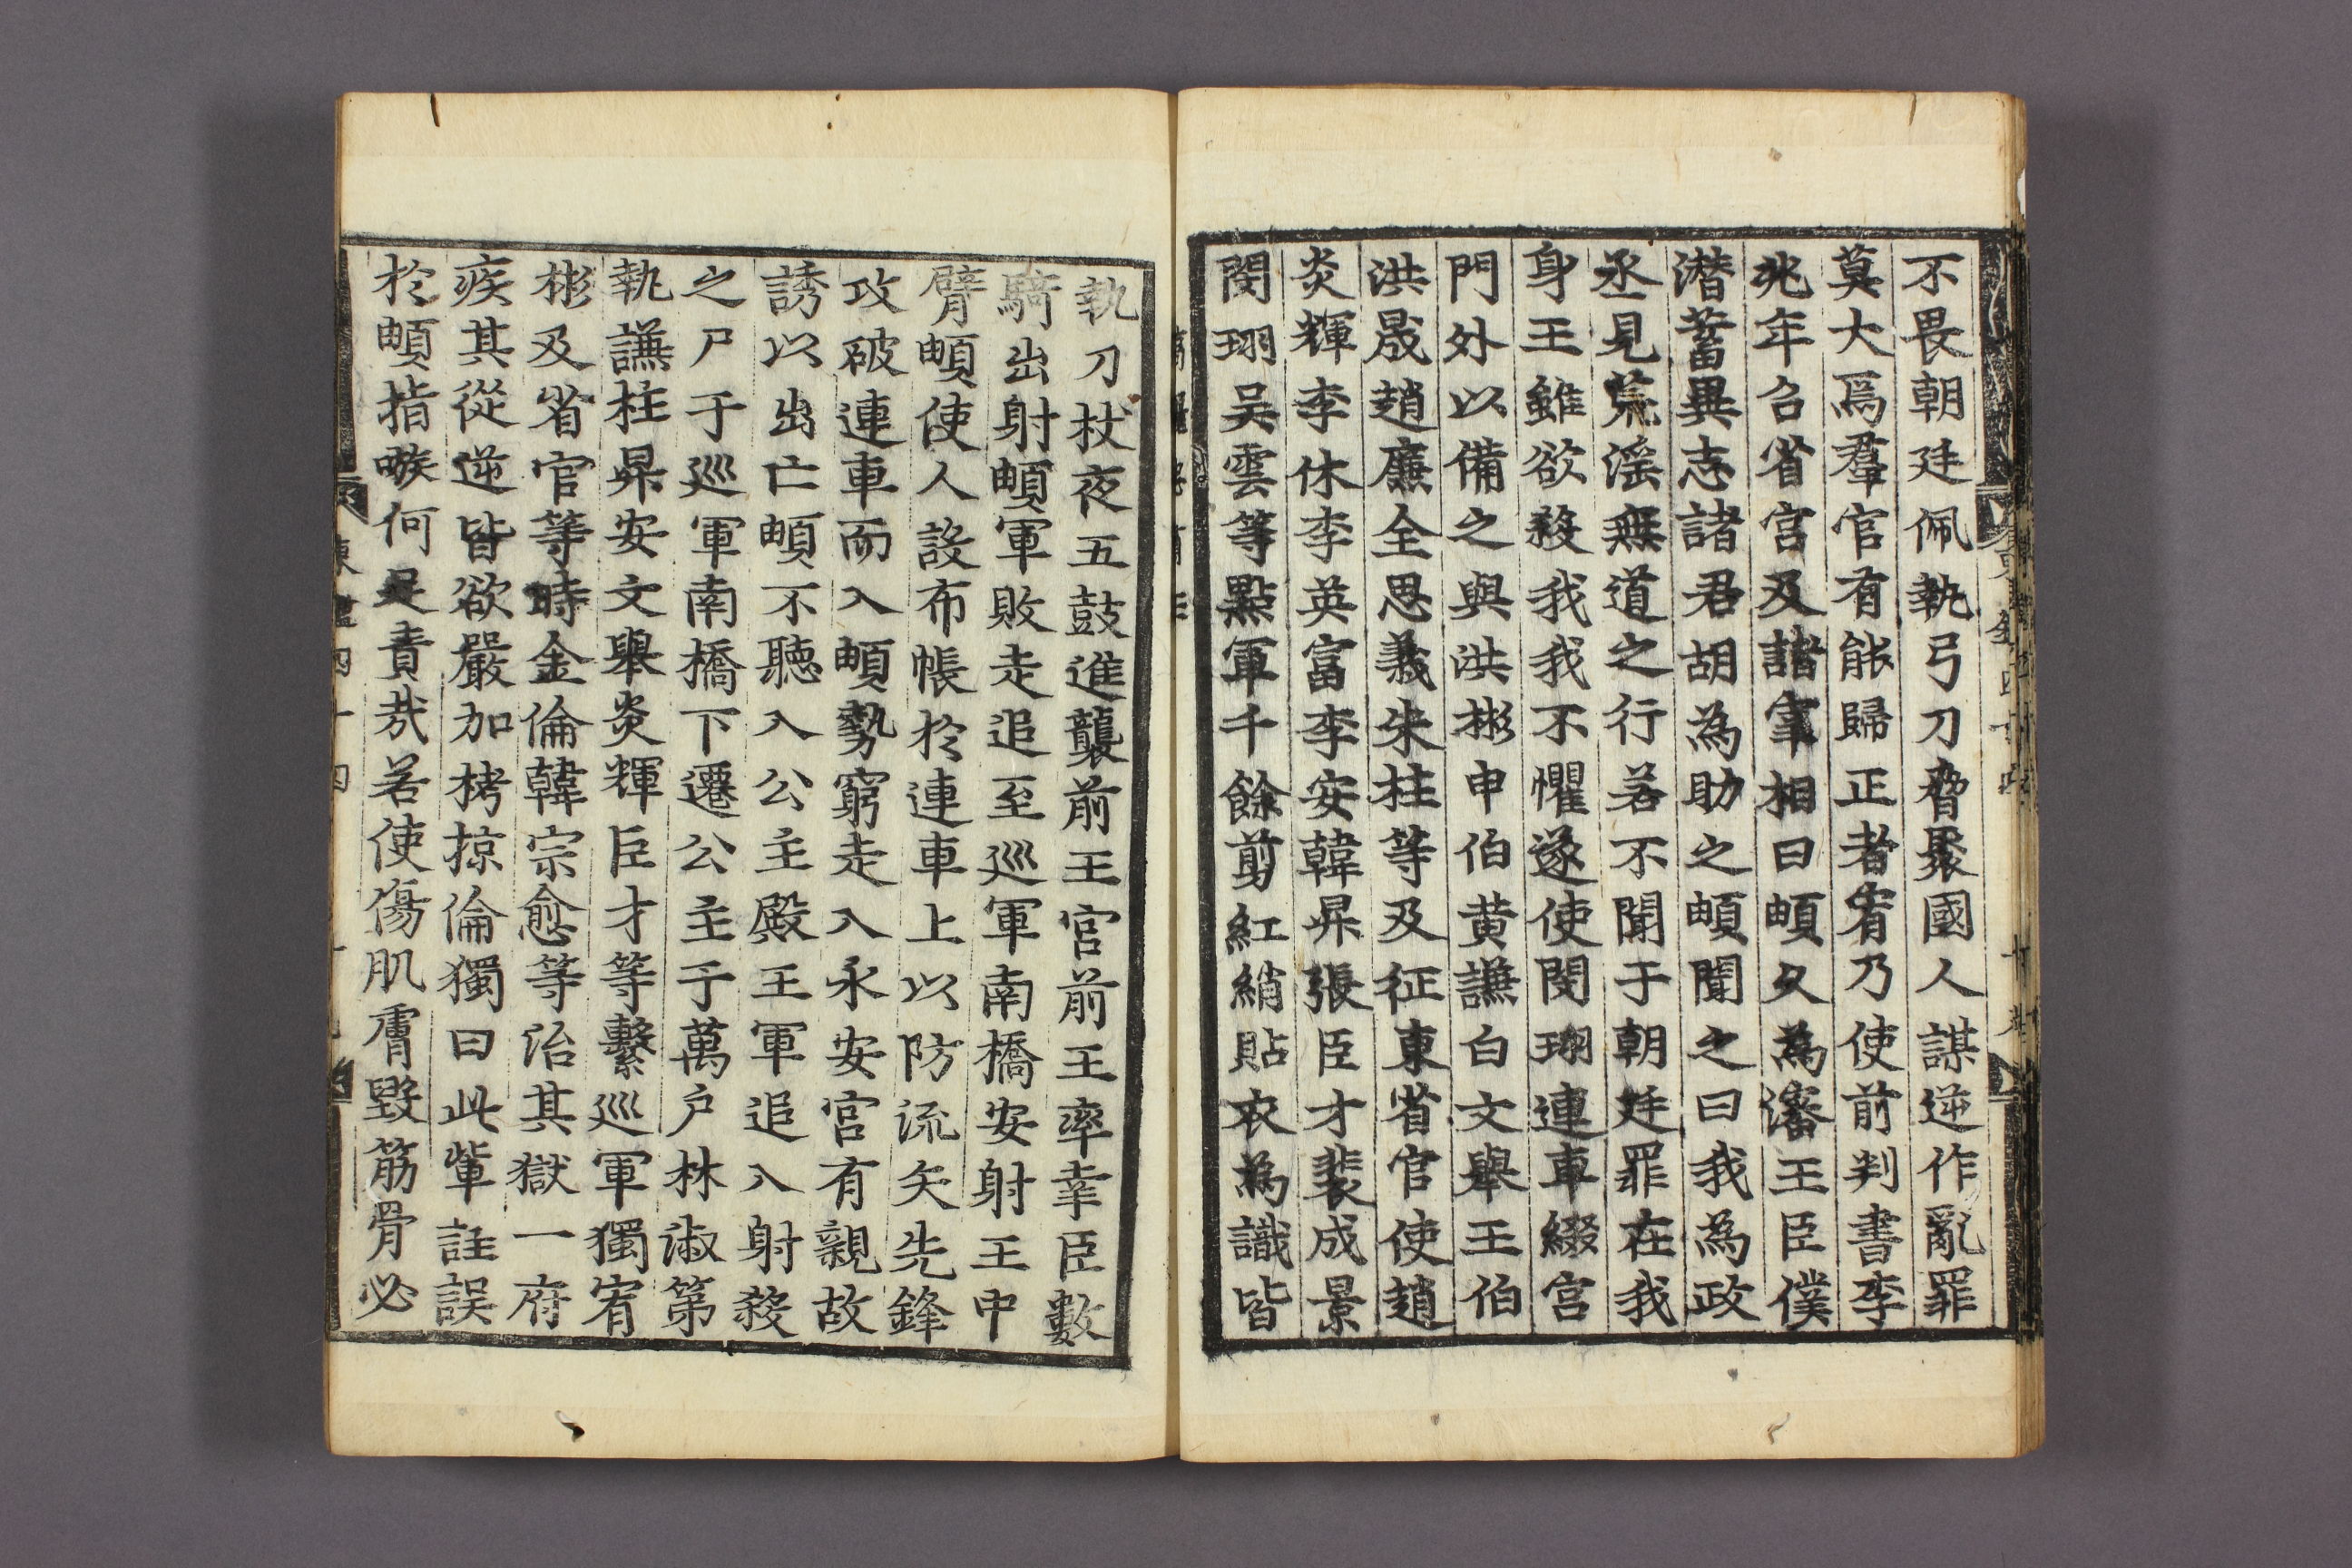 不畏朝廷佩執弓刀脅聚國人謀逆作亂罪
莫大焉羣官有能歸正者宥乃使前判書李
兆年召省官及諸宰相曰頔久為瀋王臣僕
潜蓄異志諸君胡為助之頔聞之曰我為政
丞見荒淫無道之行若不聞于朝廷罪在我
身王雖欲殺我我不懼遂使閔珝連車綴宫
門外以備之與洪彬申伯黄謙白文舉王伯
洪晟趙廉全思義朱柱等及征東省官使趙
炎輝李休李英富李安韓昇張臣才裴成景
閔珝吴雲等點軍千餘剪紅綃貼衣為識皆
執刀杖夜五鼓進襲前王宫前王率幸臣數
騎出射頔軍敗走追至巡軍南橋安射王中
臂頔使人設布帳於連車上以防流矢先鋒
攻破連車而入頔勢窮走入永安宫有親故
誘以出亡頔不聽入公主殿王軍追入射殺
之尸于巡軍南橋下遷公主于萬户林淑第
執謙柱昇安文舉炎輝臣才等繫巡軍獨宥
彬及省官等時金倫韓宗愈等治其獄一府
疾其從逆皆欲嚴加栲掠倫獨曰此軰詿誤
於頔指嗾何足責㢤若使傷肌膚毀筋骨必